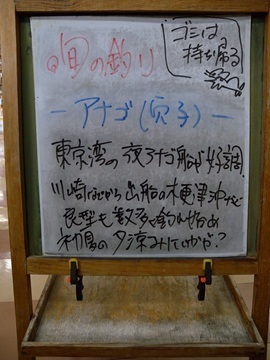 旬の釣り
ゴミは、
持ち帰る
ーアナゴ(穴子)ー
東京湾の夜アナゴ船が好調.
川崎などから出船の木更津沖など
良型も数多く釣れ始め
初夏の夕涼みにいかが?